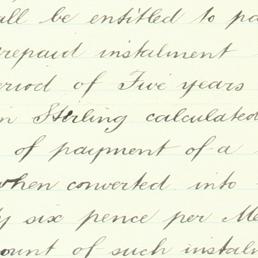 all be entitled to pa
repaid instalment
eriod of Five years
in Sterling calculated
of payment of a
when converted into
ty six pence per Me
ount of such instaln